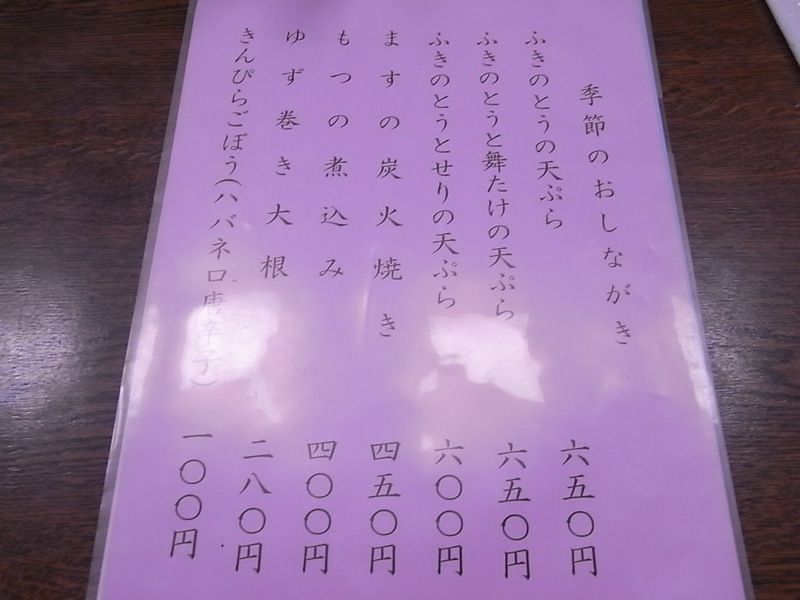 季節のおしながき
ふきのとうの天ぷら 六五〇円
ふきのとうと舞たけの天ぷら 六五〇円
ふきのとうとせりの天ぷら 六〇〇円
ますの炭火焼き 四五〇円
もつの煮込み 四〇〇円
ゆず巻き大根 二八〇円
きんぴらごぼう(ハバネロ唐辛子) 一〇〇円